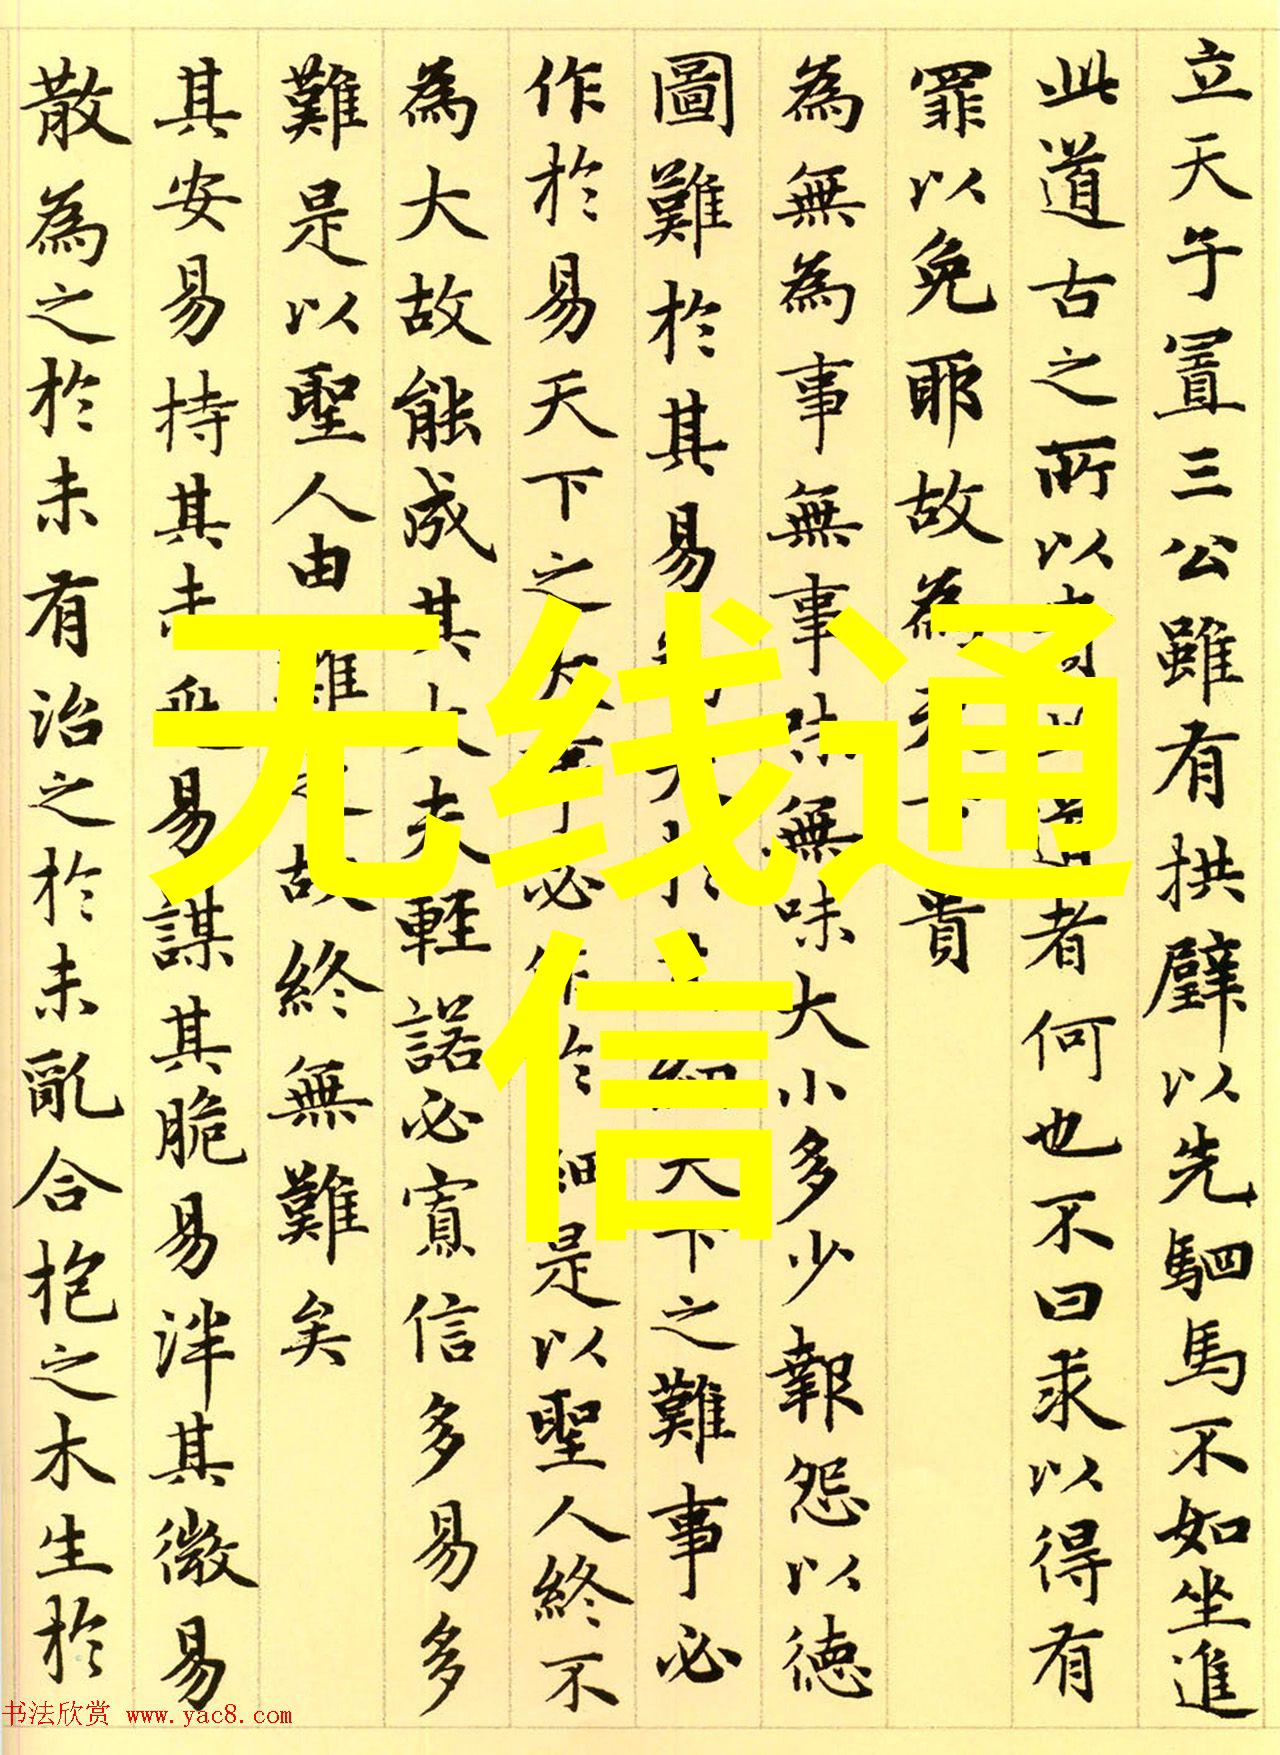 立天子置三公雖有拱璧以先駟馬不如坐進
此道古之所以者何也不曰求以得有
罪以免耶故為天下貴
為無為事無事味無味大小多少報怨以德
圖難於其易天下之難事必
作於易天下之大事必作於細是以聖人終不
為大故能成其大夫輕諾必寡信多易多
難是以聖人由難之故終無難矣
其安易持其未兆易謀其脆易泮其微易
散為之於未有治之於未亂合抱之木生於
无线通
信
书法欣赏 www.yac8.com